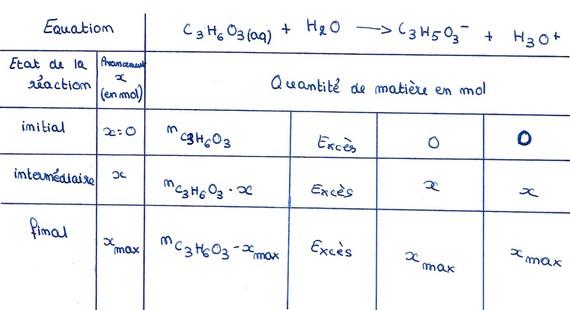 Equation C3H6O3(aq) + H2O —> C3H5O3⁻ + H3O+
Etat de la réaction Avancement x (en mol) Quantité de matière en mol
initial x=0 nC3H6O3 Excès 0 0
intermédiaire x nC3H6O3 - x Excès x x
final xmax nC3H6O3 - xmax Excès xmax xmax